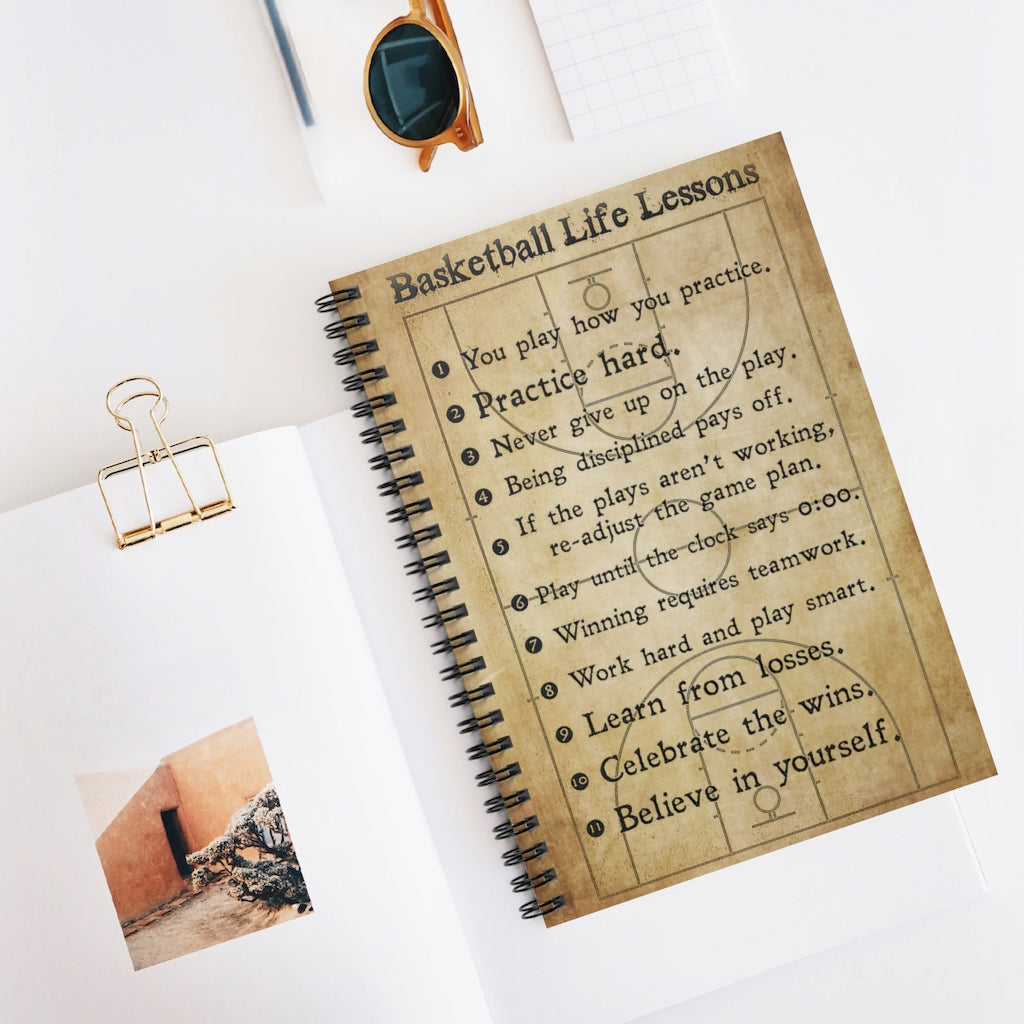 Basketball Life Lessons
1 You play how you practice.
2 Practice hard.
3 Never give up on the play.
4 Being disciplined pays off.
5 If the plays aren't working,
re-adjust the game plan.
6 Play until the clock says 0:00.
7 Winning requires teamwork.
8 Work hard and play smart.
9 Learn from losses.
10 Celebrate the wins.
11 Believe in yourself.